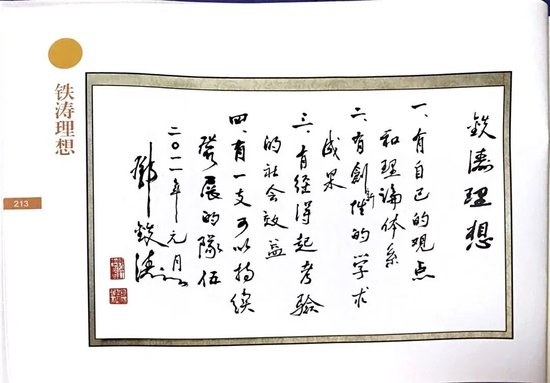 铁涛理想
213
鉄濤理想
一、有自己的观点
和理論体系
二、有創新性的学术
成果
三、有经得起考验
的社会效益
四、有一支可以持续
發展的隊伍
二〇一一年元月
鄧鉄濤